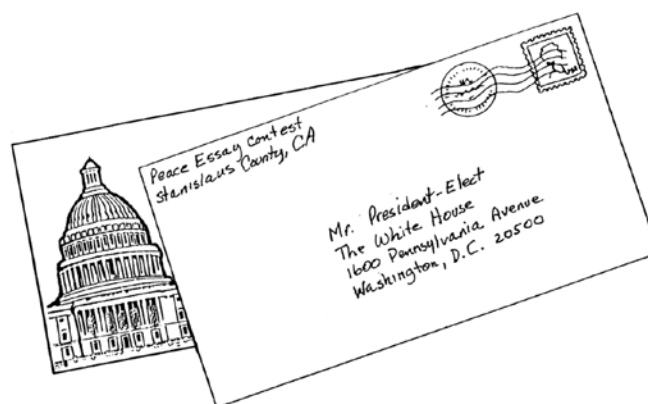 Peace Essay Contest
Stanislaus County, CA
Mr. President-Elect
The White House
1600 Pennsylvania Avenue
Washington, D.C. 20500